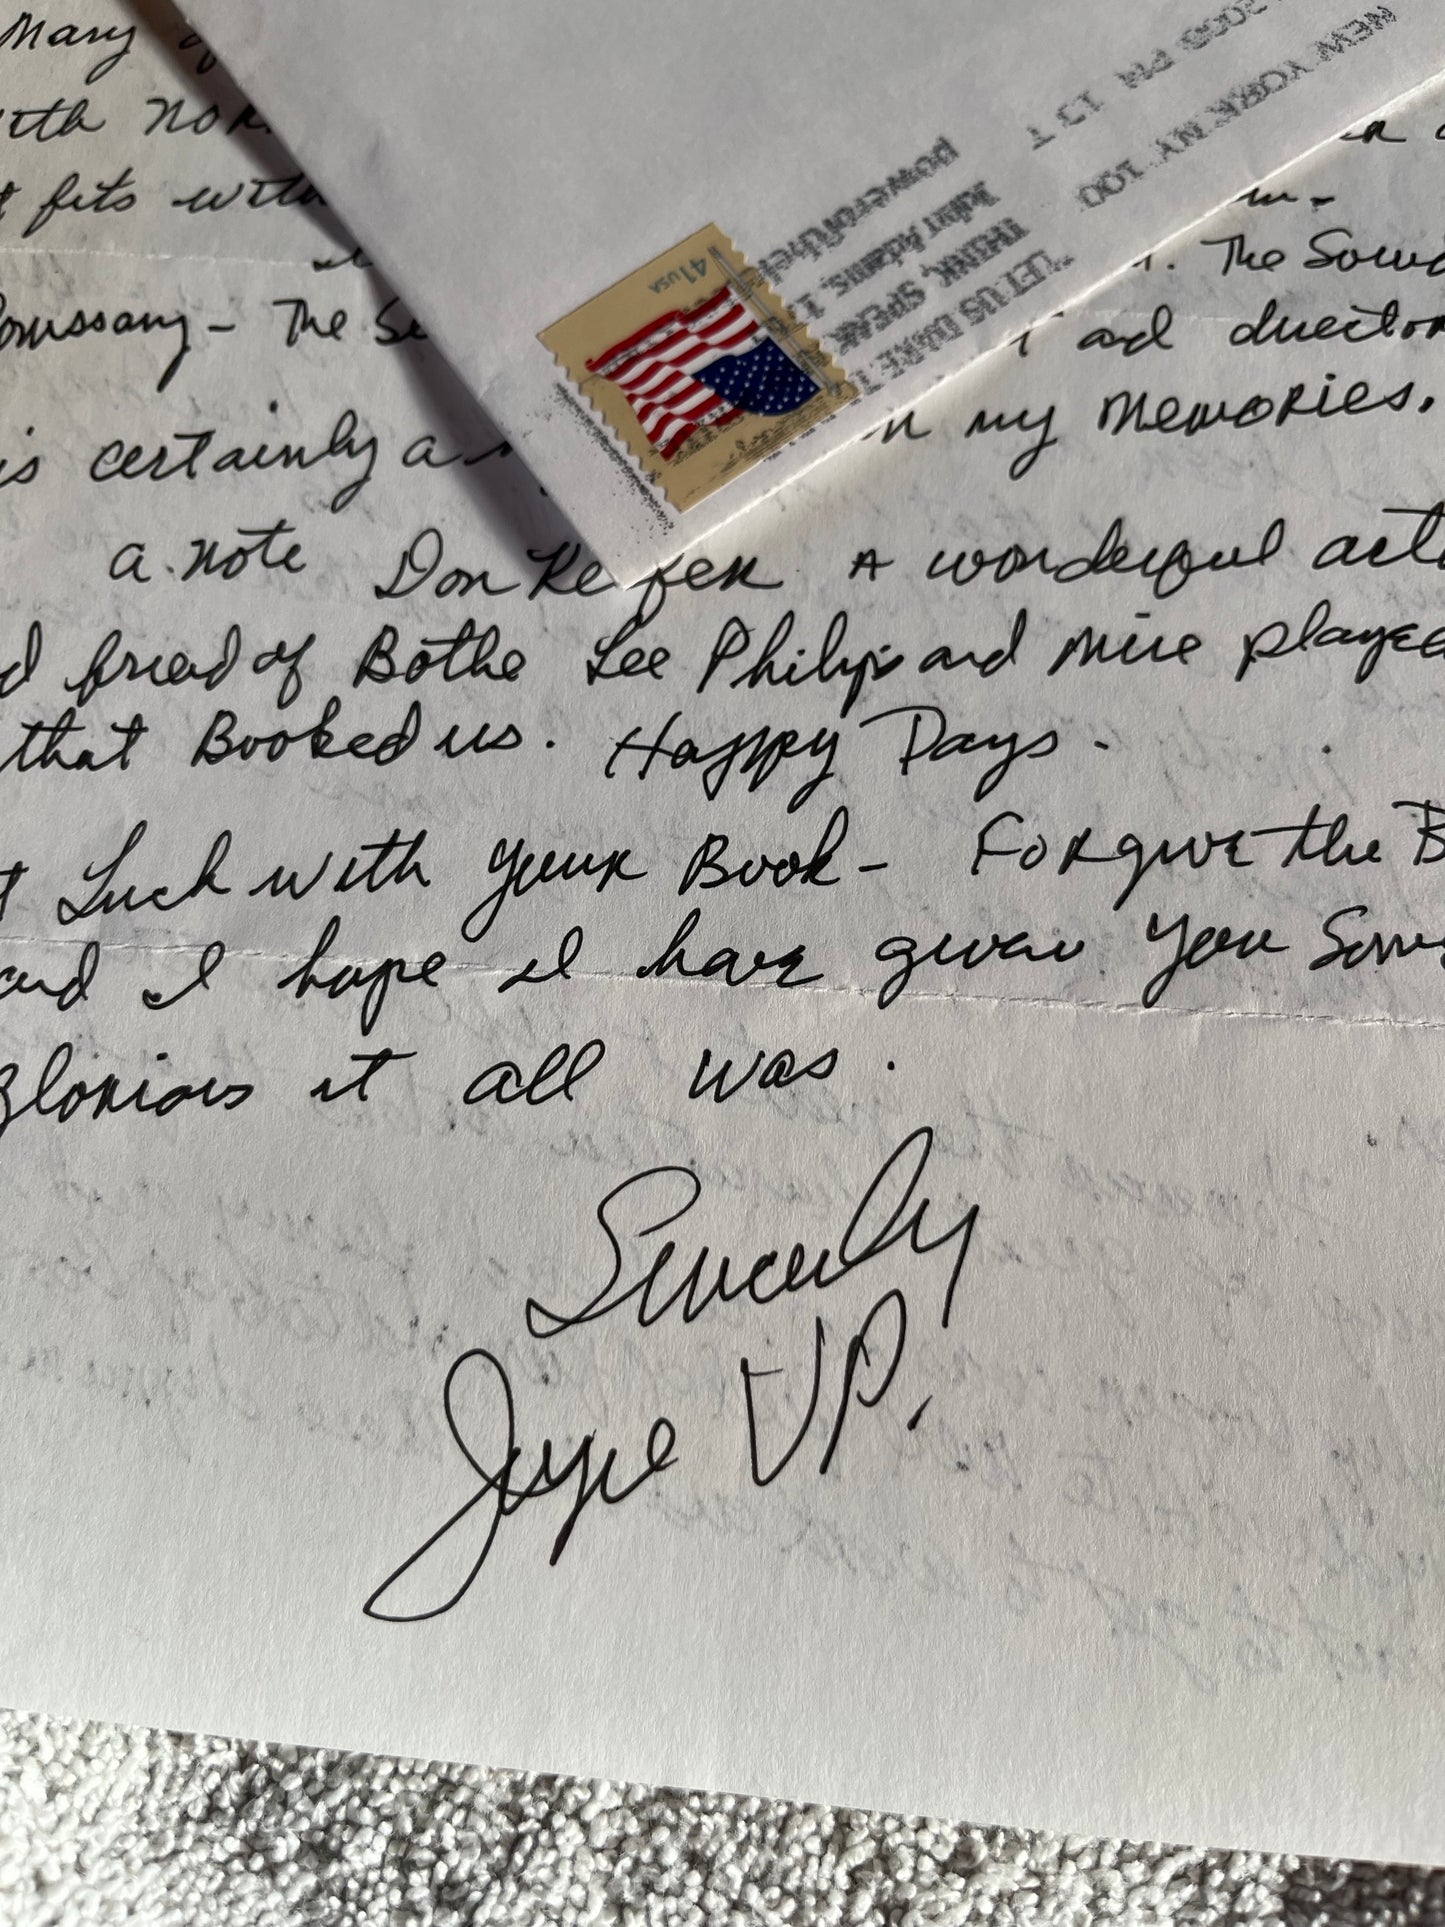 Mary
with
fits with
The
The Sound
and director
is certainly a
my Memories.
a note Don Keefer A wonderful acto
d friend of Bothe Lee Philips and Mine played
that Booked us. Happy Days.
t Luck with your Book- Forgive the B
and I hope I have given you Som
glorious it all was.
Sincerly
Joyce VP.
NEW YORK NY 100
2008 PM 13 T
"LET US DARE T
THINK, SPEAK
John Adams, 17
powerofthel
41 USA